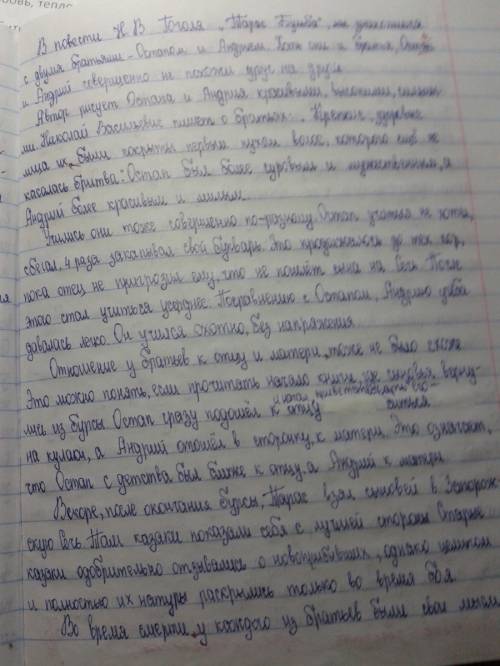 В повести Н. В. Гоголя „Тарас Бульба", мы знакомимся
с двумя братьями - Остапом и Андрием. Хотя они и братья, Остап
и Андрий совершенно не похожи друг на друга
Автор рисует Остапа и Андрия красивыми, высокими, сильны-
ми. Николай Васильевич пишет о братьях: „Крепкие, здоровые
лица их были покрыты первым пухом волос, которого ещё не
касалась бритва." Остап был более суровым и мужественным, а
Андрий более красивым и милым.
Учились они тоже совершенно по-разному. Остап учиться не хотел,
сбегал, 4 раза закапывал свой букварь. Это продолжалось до тех пор,
пока отец не пригрозил ему, что не пошлёт сына на Сечь. После
этого стал учиться усерднее. По сравнению с Остапом, Андрию учёба
давалась легко. Он учился охотно, без напряжения.
Отношение у братьев к отцу и матери, тоже не было схоже
Это можно понять, если прочитать начало книги, где сыновья верну-
лись из бурсы. Остап сразу подошёл к отцу и начал
на кулаки, а Андрий отошёл в сторонку, к матери. Это означает,
что Остап с детства был ближе к отцу, а Андрий к матери
Вскоре, после окончания бурсы, Тарас взял сыновей в Запорож-
скую Сечь. Там казаки показали себя с лучшей стороны. Старые
казаки одобрительно отзывались о новоприбывших, однако целиком
и полностью их натуры раскрылись только во время боя.
Во время смерти у каждого из братьев были свои мысли